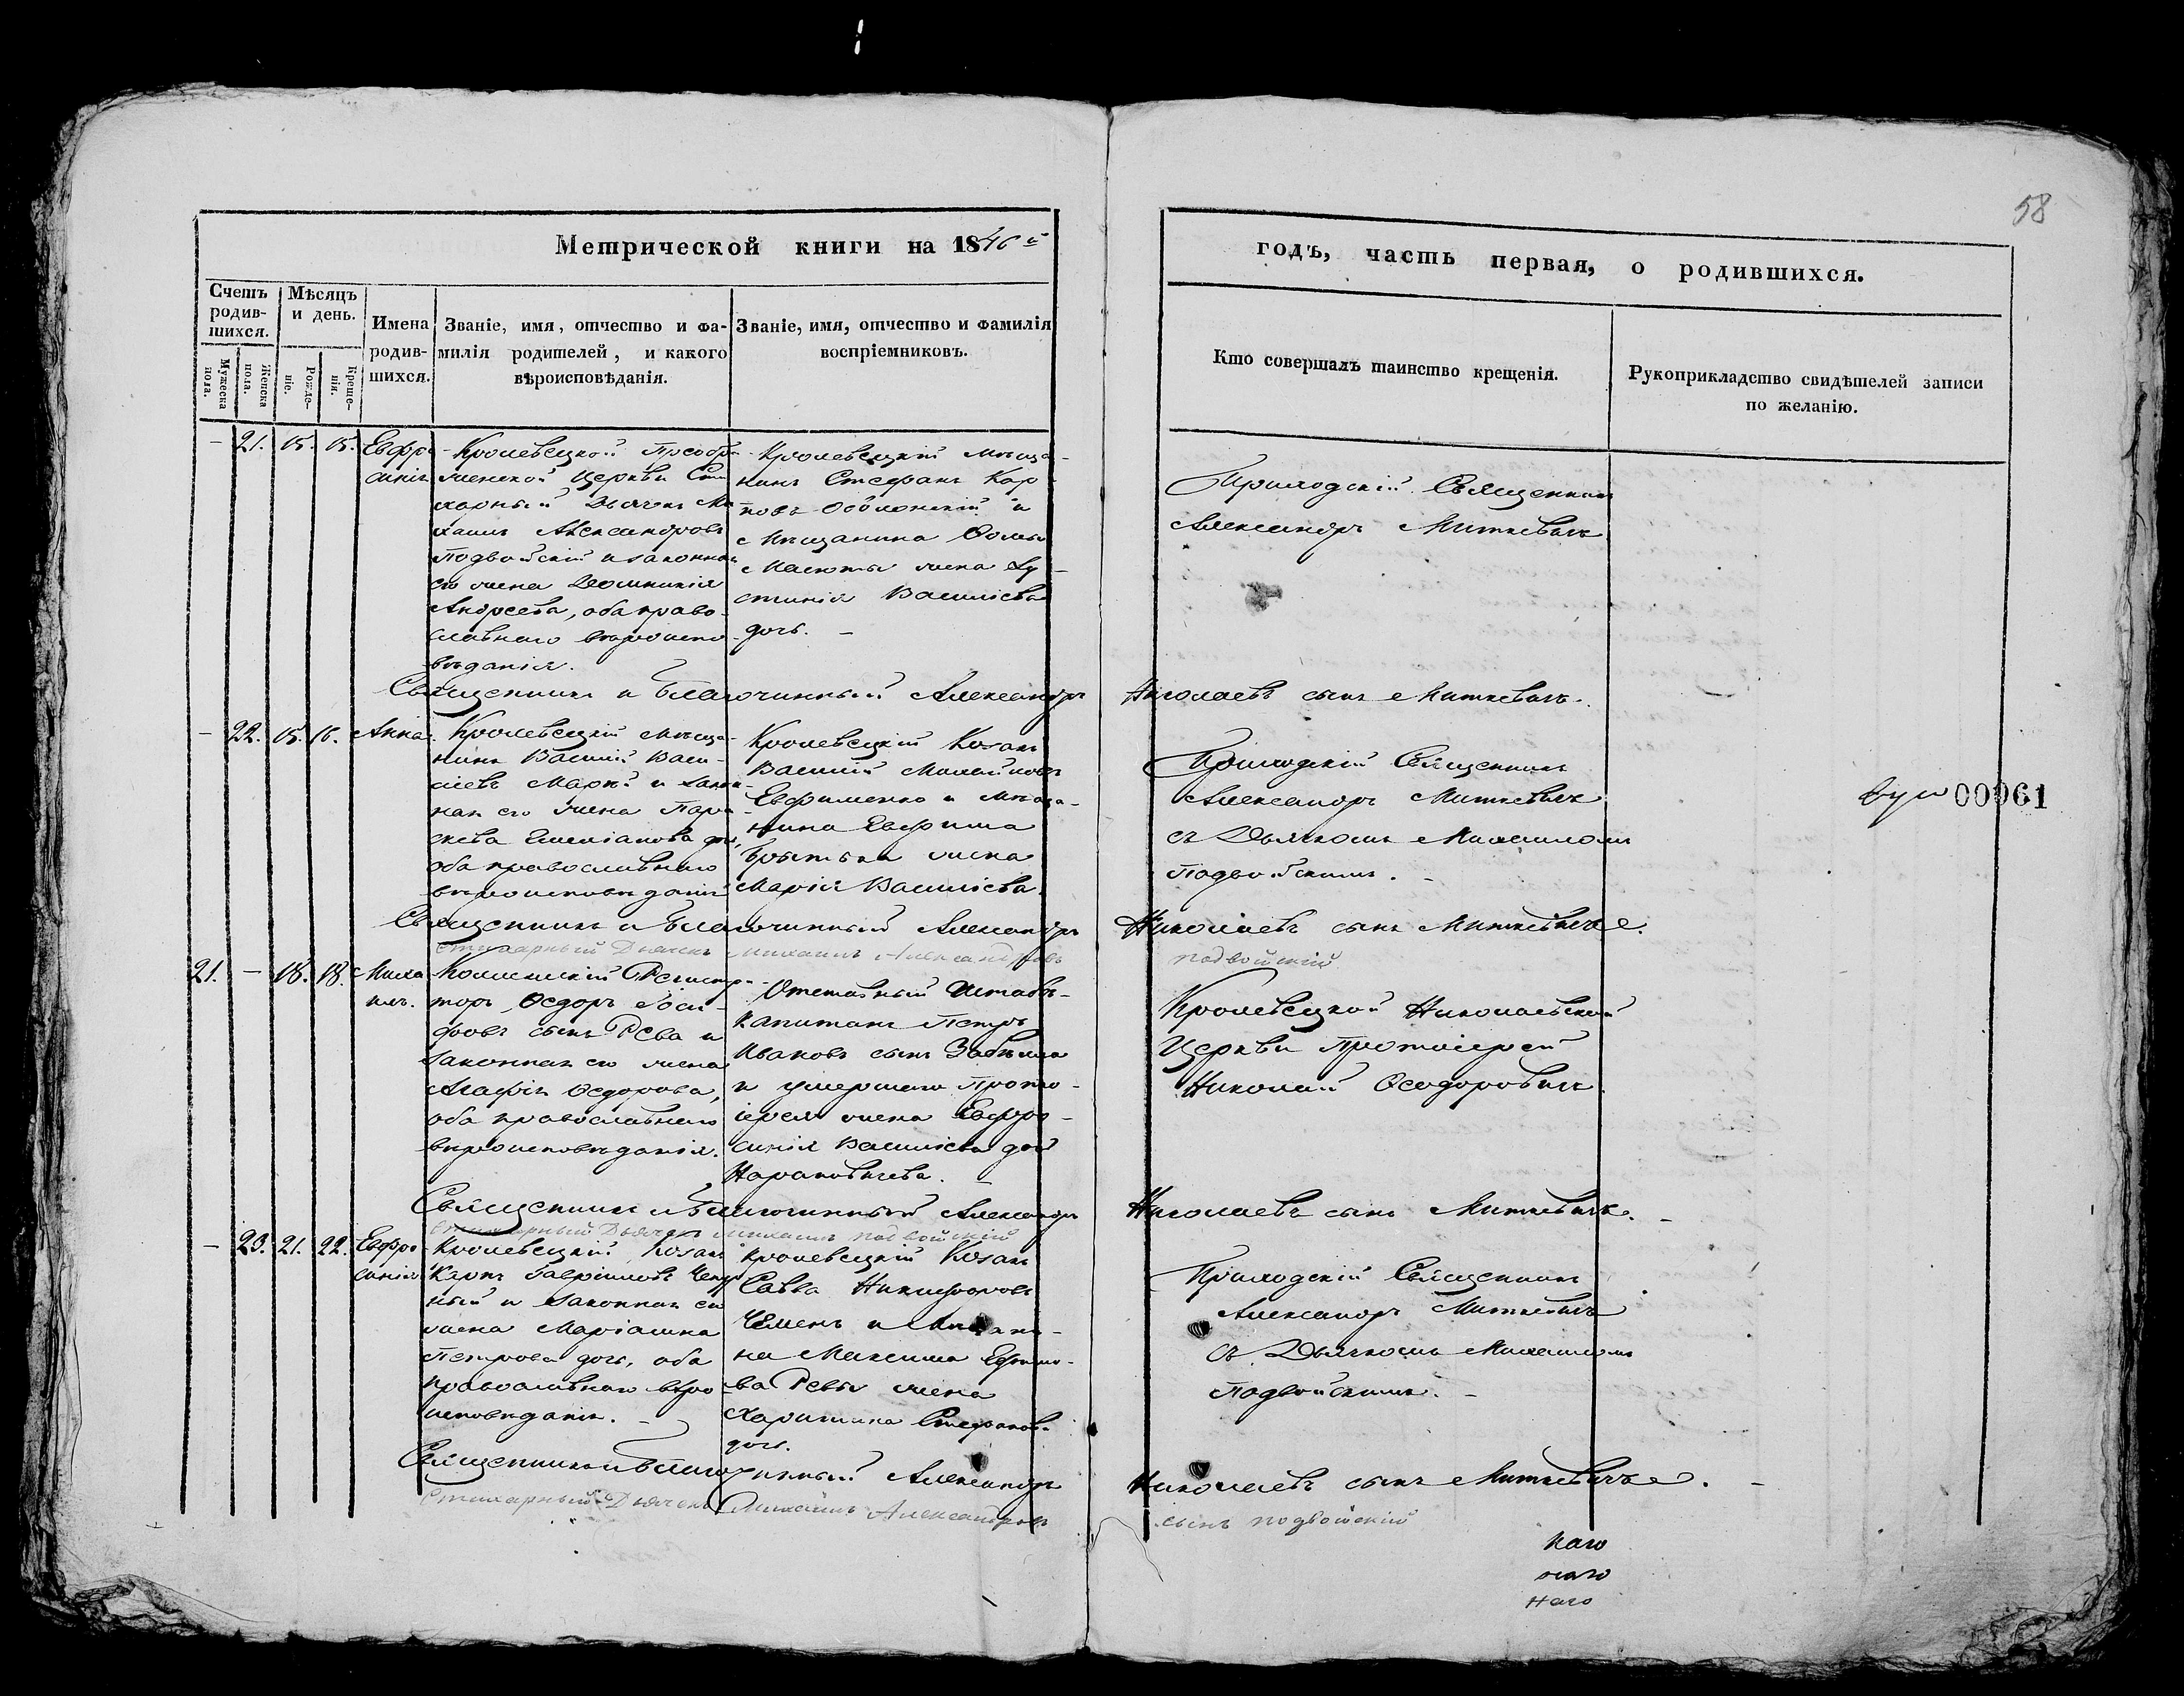 58
Метрической книги на 1846й
годъ, часть первая, о родившихся.
Счетъ родив-
шихся.
Мѣсяцъ
и день.
Мужеска пола.
Женска пола.
Рожде-
ніе.
Креще-
нія.
Имена
родив-
шихся.
Званіе, имя, отчество и фа-
милія родителей, и какого
вѣроисповѣданія.
Званіе, имя, отчество и фамилія
воспріемниковъ.
Кто совершалъ таинство крещенія.
Рукоприкладство свидѣтелей записи
по желанію.
– 21. 15. 15. Евфро
синія
Кролевецкой Преобра
женской Церкви Сти
харный Дьячекъ Ми
хаилъ Александровъ
Подвойскій и законная
его жена Домникія
Андреева, оба право-
славнаго вѣроиспо-
вѣданія.
Кролевецкій мѣща-
нинъ Стефанъ Кар
повъ Оболонскій и
Мѣщанина Ѳомы
жена Іу-
стинія Василіева
дочь. –
Приходскій Священникъ
Александръ Миткевичъ
Священникъ и Благочинный Александръ Николаевъ сынъ Миткевичъ.
– 22. 15. 16. Анна.
Кролевецкій мѣща-
нинъ Василій Васи-
ліевъ и закон-
ная его жена Пара-
скева Емеліанова дочь,
оба православнаго
вѣроисповѣданія
Кролевецкій Козакъ
Василій Михайловъ
Евфименко и мѣща-
нина Евфима
жена
Марія Василіева.
Приходскій Священникъ
Александръ Миткевичъ
съ Дьячкомъ Михаиломъ
Подвойскимъ. –
00961
Священникъ и Благочинный Александръ Николаевъ сынъ Миткевичъ.
Стихарный Дьячекъ Михаилъ Александровъ подвойскій
21. – 18. 18. Миха
илъ.
Коллежскій Регистра-
торъ Ѳедоръ Іоси-
фовъ сынъ Рева и
законная его жена
Агафія Ѳедорова,
оба православнаго
вѣроисповѣданія.
Отставный Штабъ-
капитанъ Петръ
Ивановъ сынъ Забѣлла
и умершаго Прото-
іерея жена Евфро-
синія Василіева дочь
Нарановичева. –
Кролевецкой Николаевской
Церкви Протоіерей
Николай Ѳеодоровичъ.
Священникъ и Благочинный Александръ Николаевъ сынъ Миткевичъ. –
Стихарный Дьячекъ Михаилъ подвойскій
– 23. 21. 22. Евфро
синія
Кролевецкій Козакъ
Карпъ Гавріиловъ
и законная его
жена Маріамна
Петрова дочь, оба
православнаго вѣро
исповѣданія. –
Кролевецкій Козакъ
Савва Никифоровъ
и Мѣщани-
на Максима Ефимо-
ва Ревы жена
Харитина Стефанова
дочь.
Приходскій Священникъ
Александръ Миткевичъ
съ Дьячкомъ Михаиломъ
Подвойскимъ. –
Священникъ и Благочинный Александръ Николаевъ сынъ Миткевичъ. –
Стихарный Дьячекъ Михаилъ Александровъ сынъ подвойскій